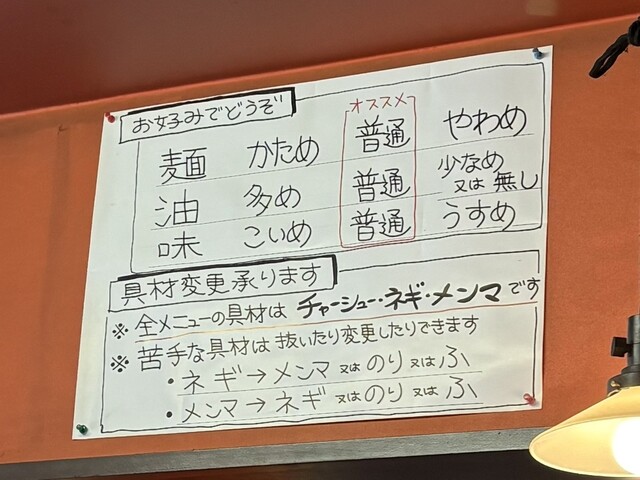 お好みでどうぞ
オススメ
麺 かため 普通 やわめ
油 多め 普通 少なめ又は無し
味 こいめ 普通 うすめ
具材変更承ります
※全メニューの具材はチャーシュー・ネギ・メンマです
※苦手な具材は抜いたり変更したりできます
・ネギ→メンマ又はのり又はふ
・メンマ→ネギ又はのり又はふ